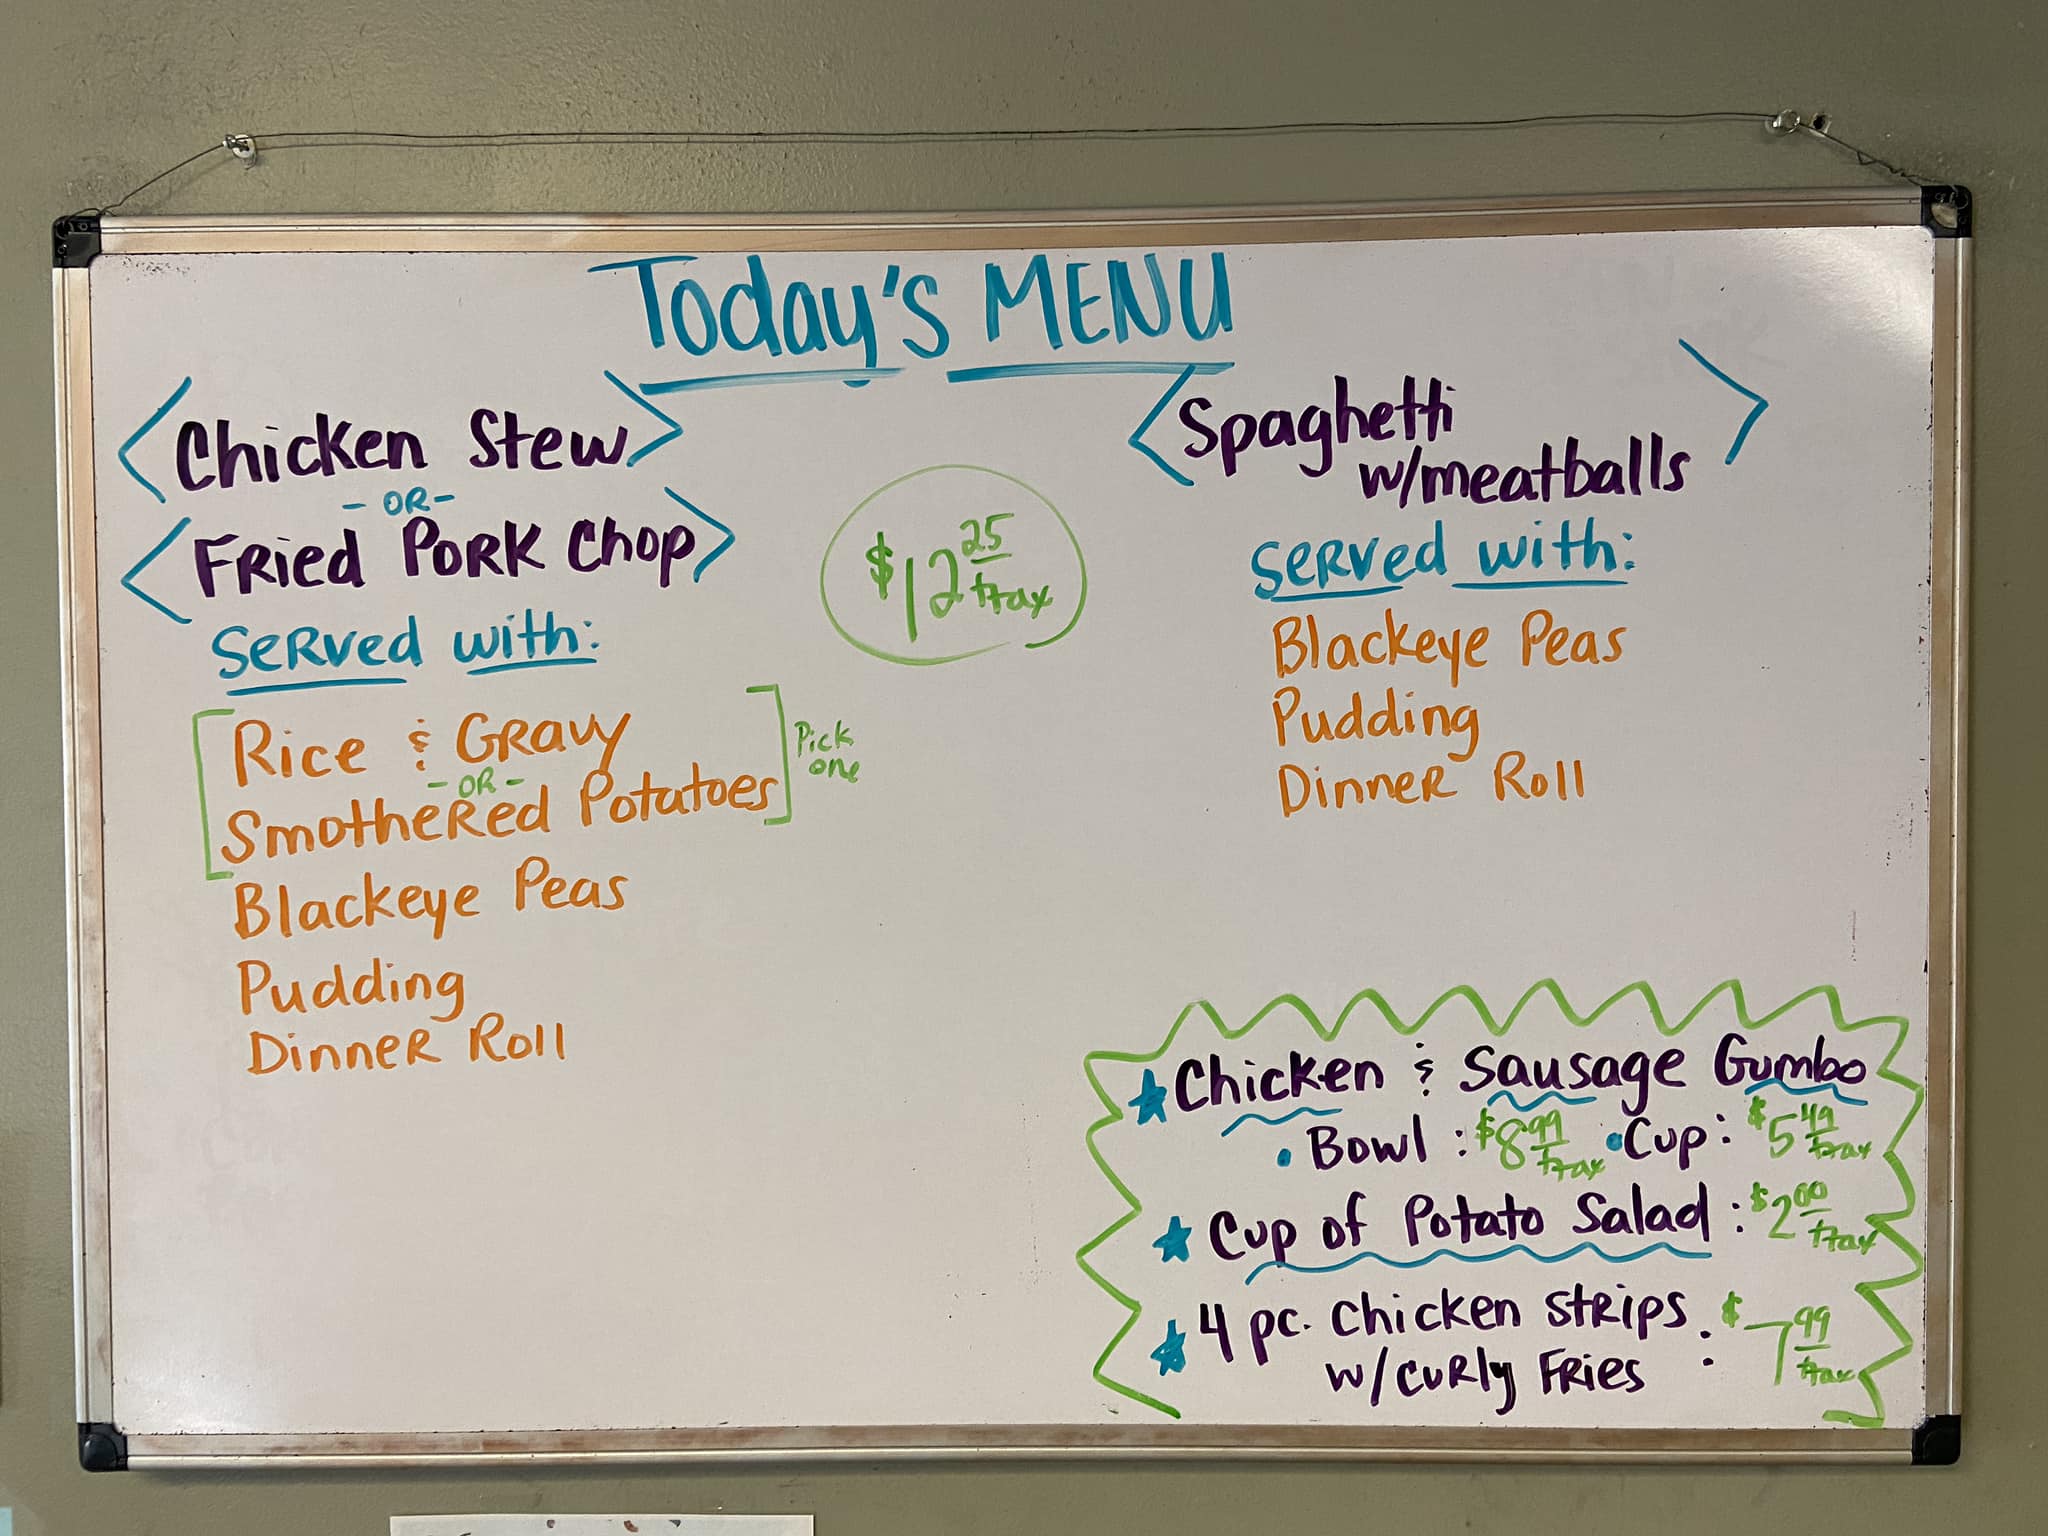 Today's MENU
Chicken Stew
- OR -
Fried Pork Chop
Served with:
Rice & Gravy
- OR -
Smothered Potatoes
Pick
one
Blackeye Peas
Pudding
Dinner Roll
$12 25
+tax
Spaghetti
w/meatballs
Served with:
Blackeye Peas
Pudding
Dinner Roll
Chicken & Sausage Gumbo
• Bowl : $8 99 +tax • Cup : $5 49 +tax
Cup of Potato Salad : $2 00 +tax
4 pc. Chicken Strips : $7 99 +tax
w/ Curly Fries